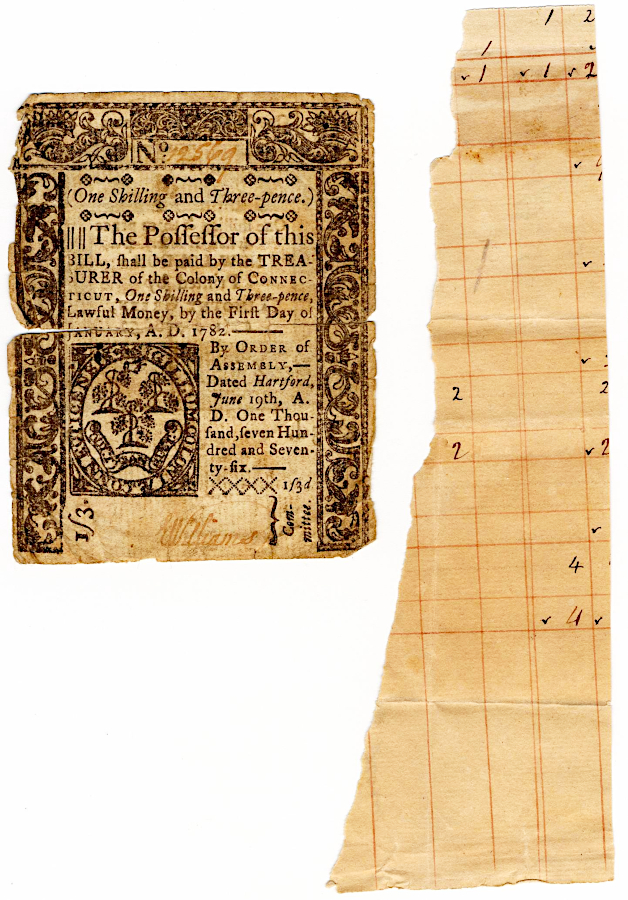 No 12569
(One Shilling and Three-pence.)
The Poſſeſſor of this
BILL, ſhall be paid by the TREA-
SURER of the Colony of CONNEC-
TICUT, One Shilling and Three-pence,
Lawful Money, by the Firſt Day of
JANUARY, A. D. 1782.
By ORDER of
ASSEMBLY,—
Dated Hartford,
June 19th, A.
D. One Thou-
ſand, ſeven Hun-
dred and Seven-
ty-ſix.—
XXXX 1ſ3d
1ſ3.
Williams
Com-
mittee
1 2
1
✓1 ✓1 ✓2
✓
✓
✓
2 2
2 ✓2
✓
4
✓ 4 ✓